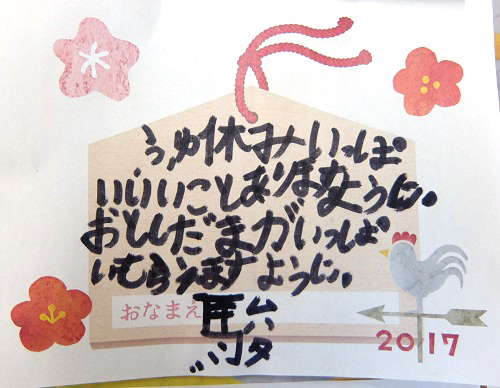 うゆ休みいっぱ
いいいことありまなように。
おとしだまがいっぱ
いもらえますように。
おなまえ
駿
2017